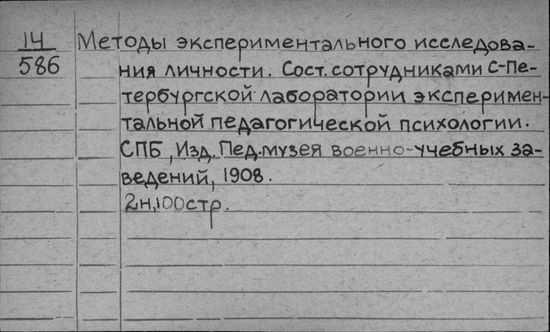 14 Методы экспериментального исследова-
586 ния личности. Сост. сотрудниками С-Пе-
тербургской лаборатории эксперимен-
тальной педагогической психологии.
СПБ, Изд. Пед. музея военно-учебных за-
ведений, 1908.
2н, 100 стр.